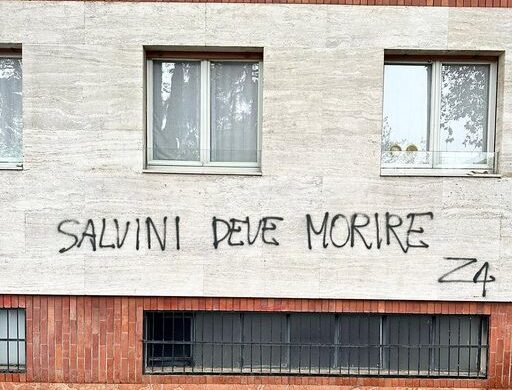 SALVINI DEVE MORIRE
Z4